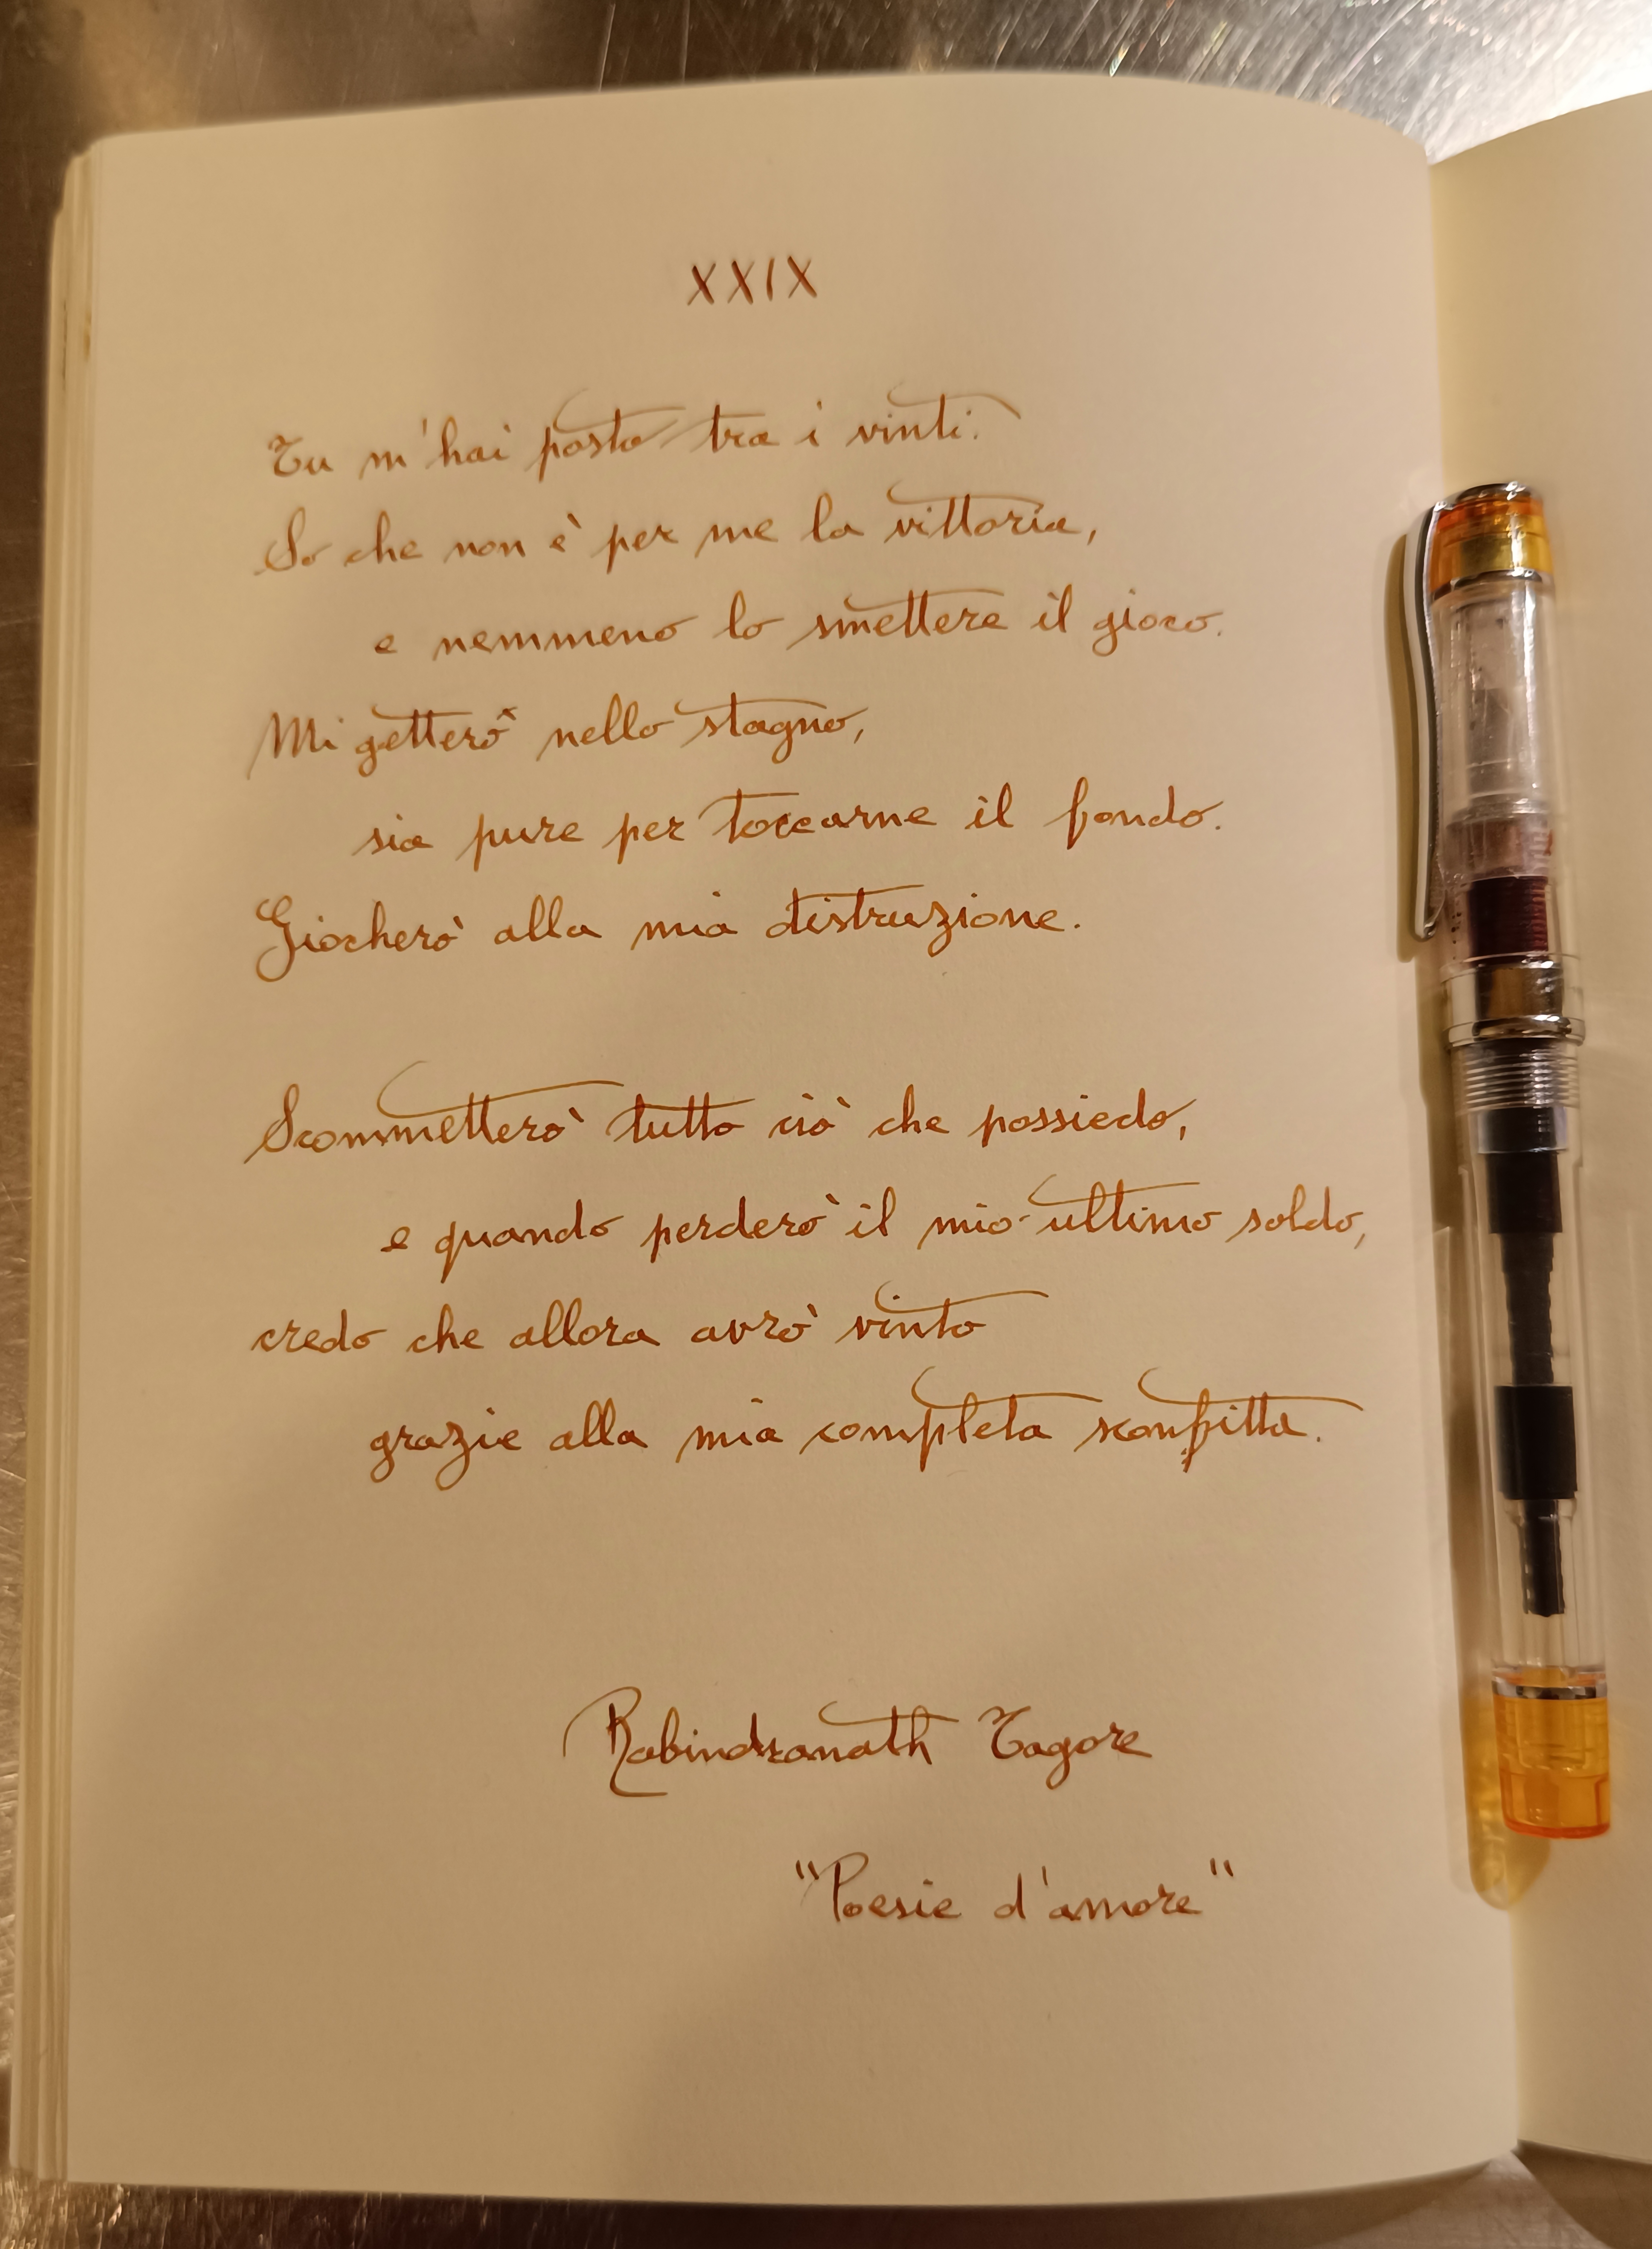 XXIX
Tu m'hai posto tra i vinti.
So che non è per me la vittoria,
e nemmeno lo smettere il gioco.
Mi getterò nello stagno,
sia pure per toccarne il fondo.
Giocherò alla mia distruzione.
Scommetterò tutto ciò che possiedo,
e quando perderò il mio ultimo soldo,
credo che allora avrò vinto
grazie alla mia completa sconfitta.
Rabindranath Tagore
"Poesie d'amore"